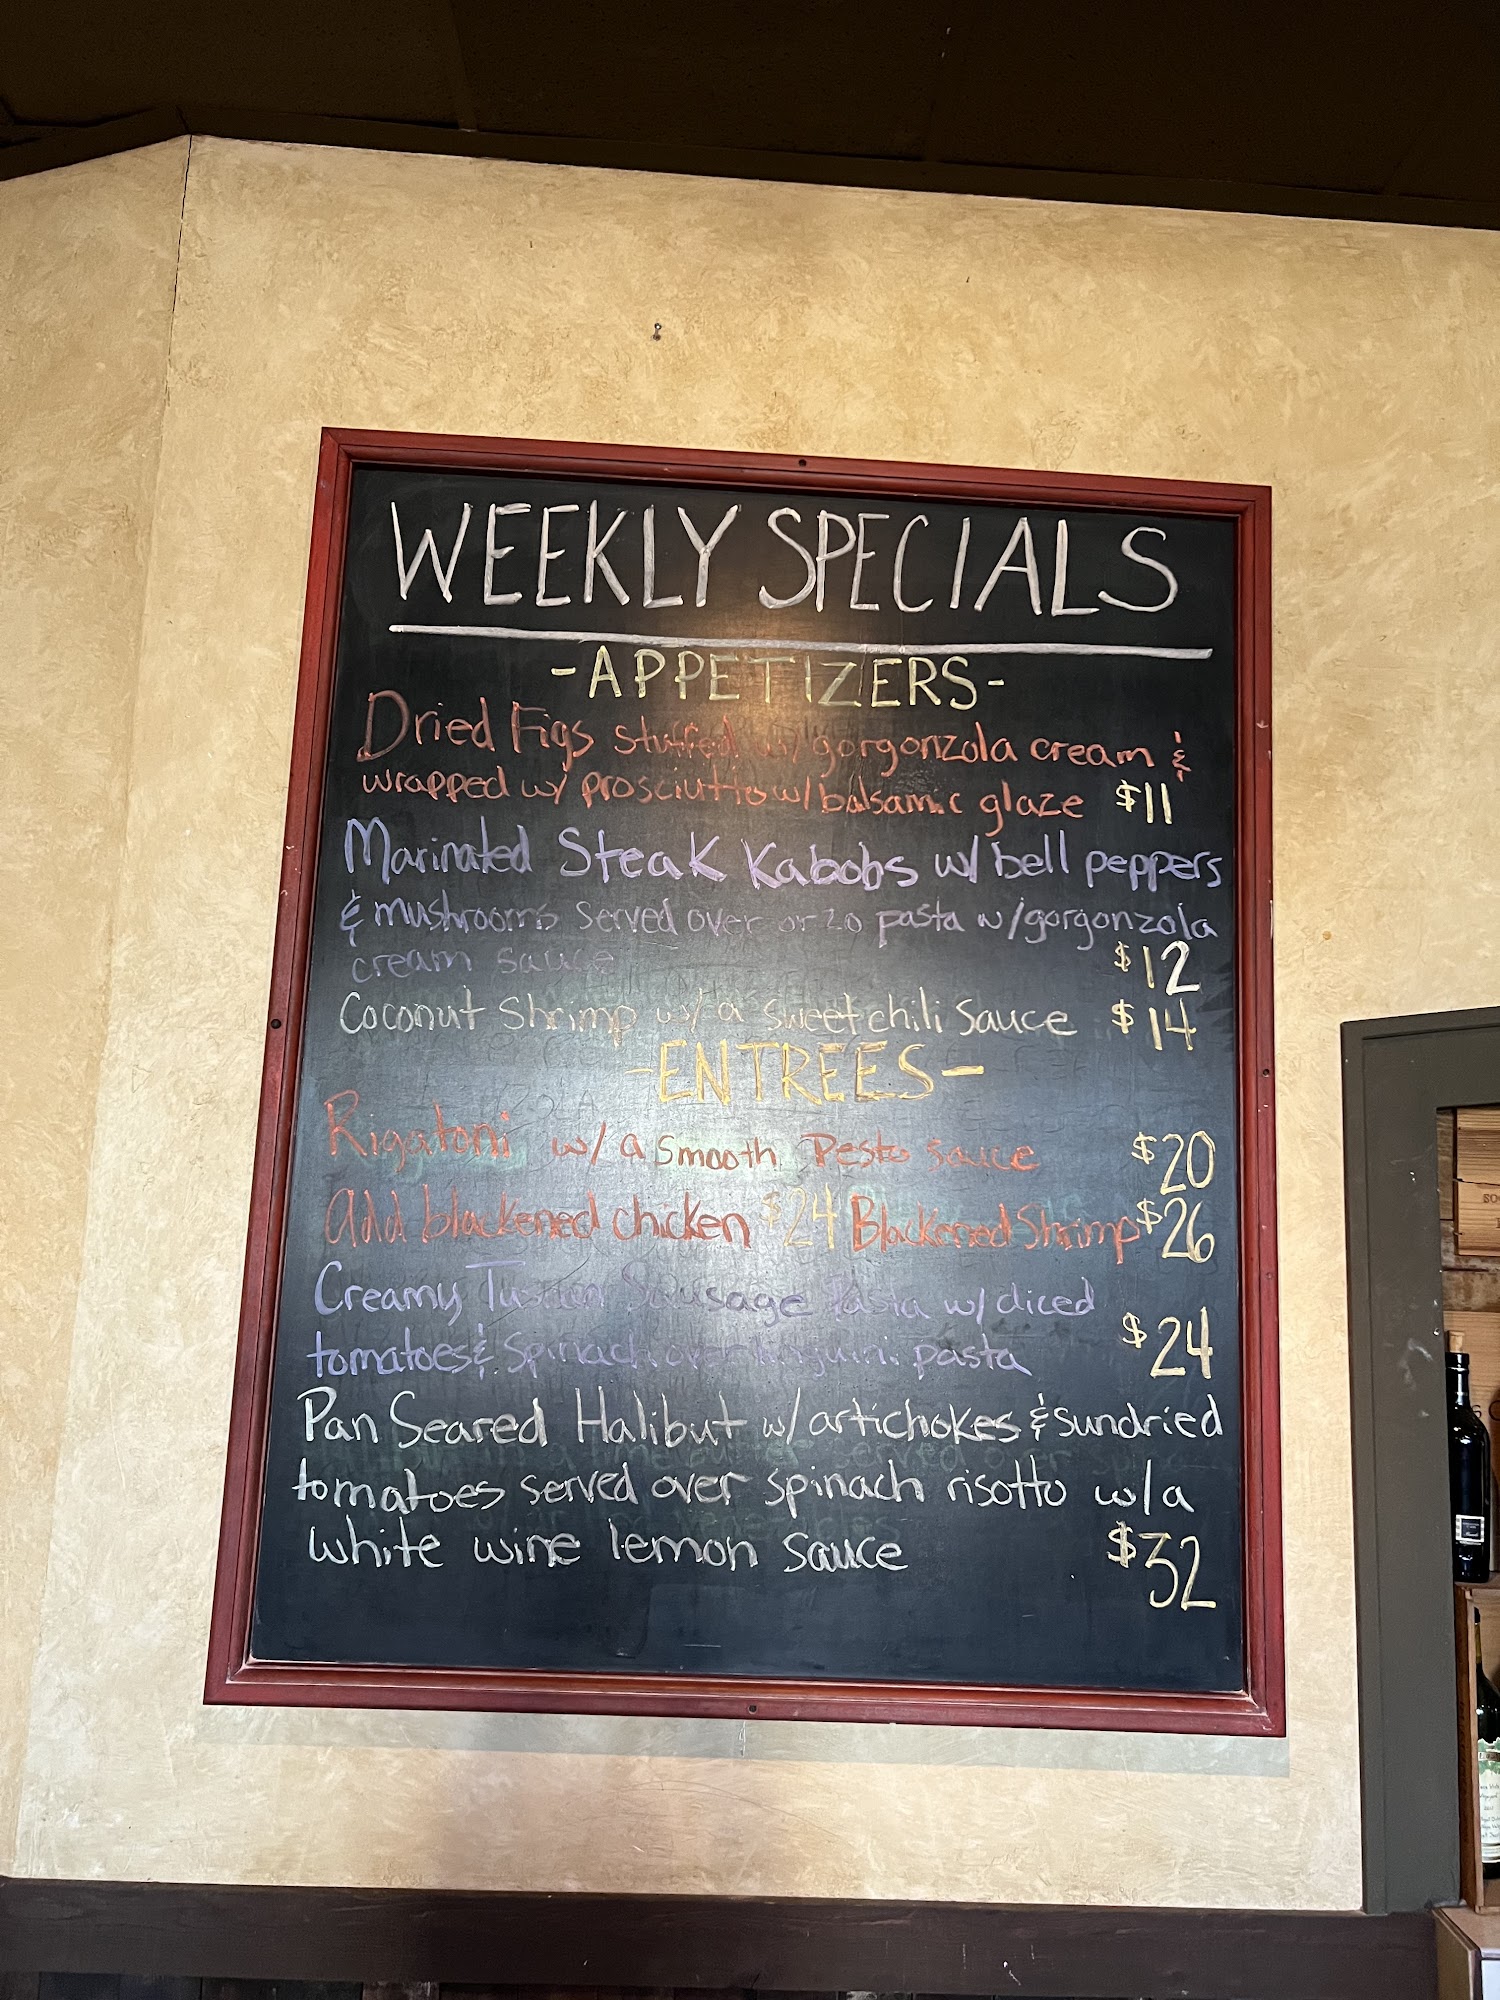 WEEKLY SPECIALS
-APPETIZERS-
Dried Figs stuffed w/ gorgonzola cream &
wrapped w/ prosciutto w/ balsamic glaze $11
Marinated Steak Kabobs w/ bell peppers
& mushrooms served over orzo pasta w/ gorgonzola
cream sauce $12
Coconut Shrimp w/ a sweet chili sauce $14
-ENTREES-
Rigatoni w/ a smooth Pesto sauce $20
Add blackened chicken $24 Blackened Shrimp $26
Creamy Tuscan Sausage Pasta w/ diced
tomatoes & spinach over linguini pasta $24
Pan Seared Halibut w/ artichokes & sundried
tomatoes served over spinach risotto w/a
white wine lemon sauce $32